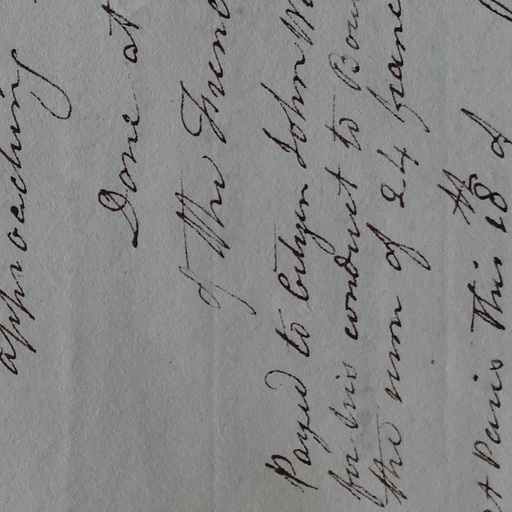 approaching
Done at
of the Frenc
Payed to Citizen John
for his conduct to Bou
the sum of 24 franc
at Paris this 18th